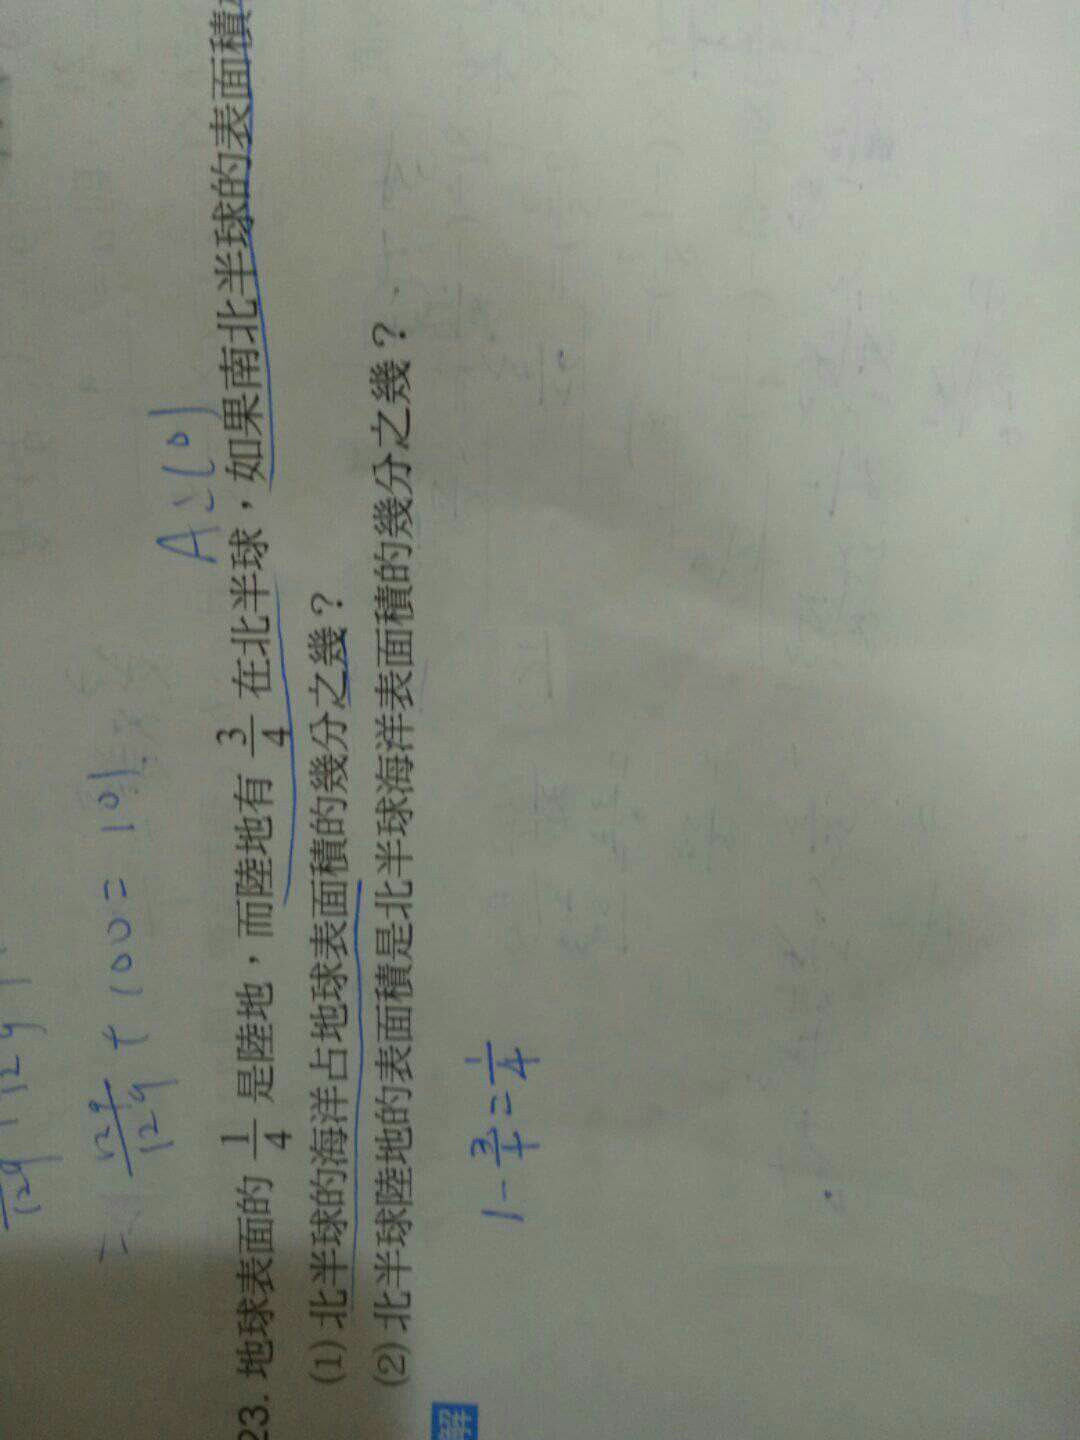 = 129/129 + 100 = 101
A：101
23. 地球表面的 1/4 是陸地，而陸地有 3/4 在北半球，如果南北半球的表面積
(1) 北半球的海洋占地球表面積的幾分之幾？
(2) 北半球陸地的表面積是北半球海洋表面積的幾分之幾？
解
1 - 3/4 = 1/4